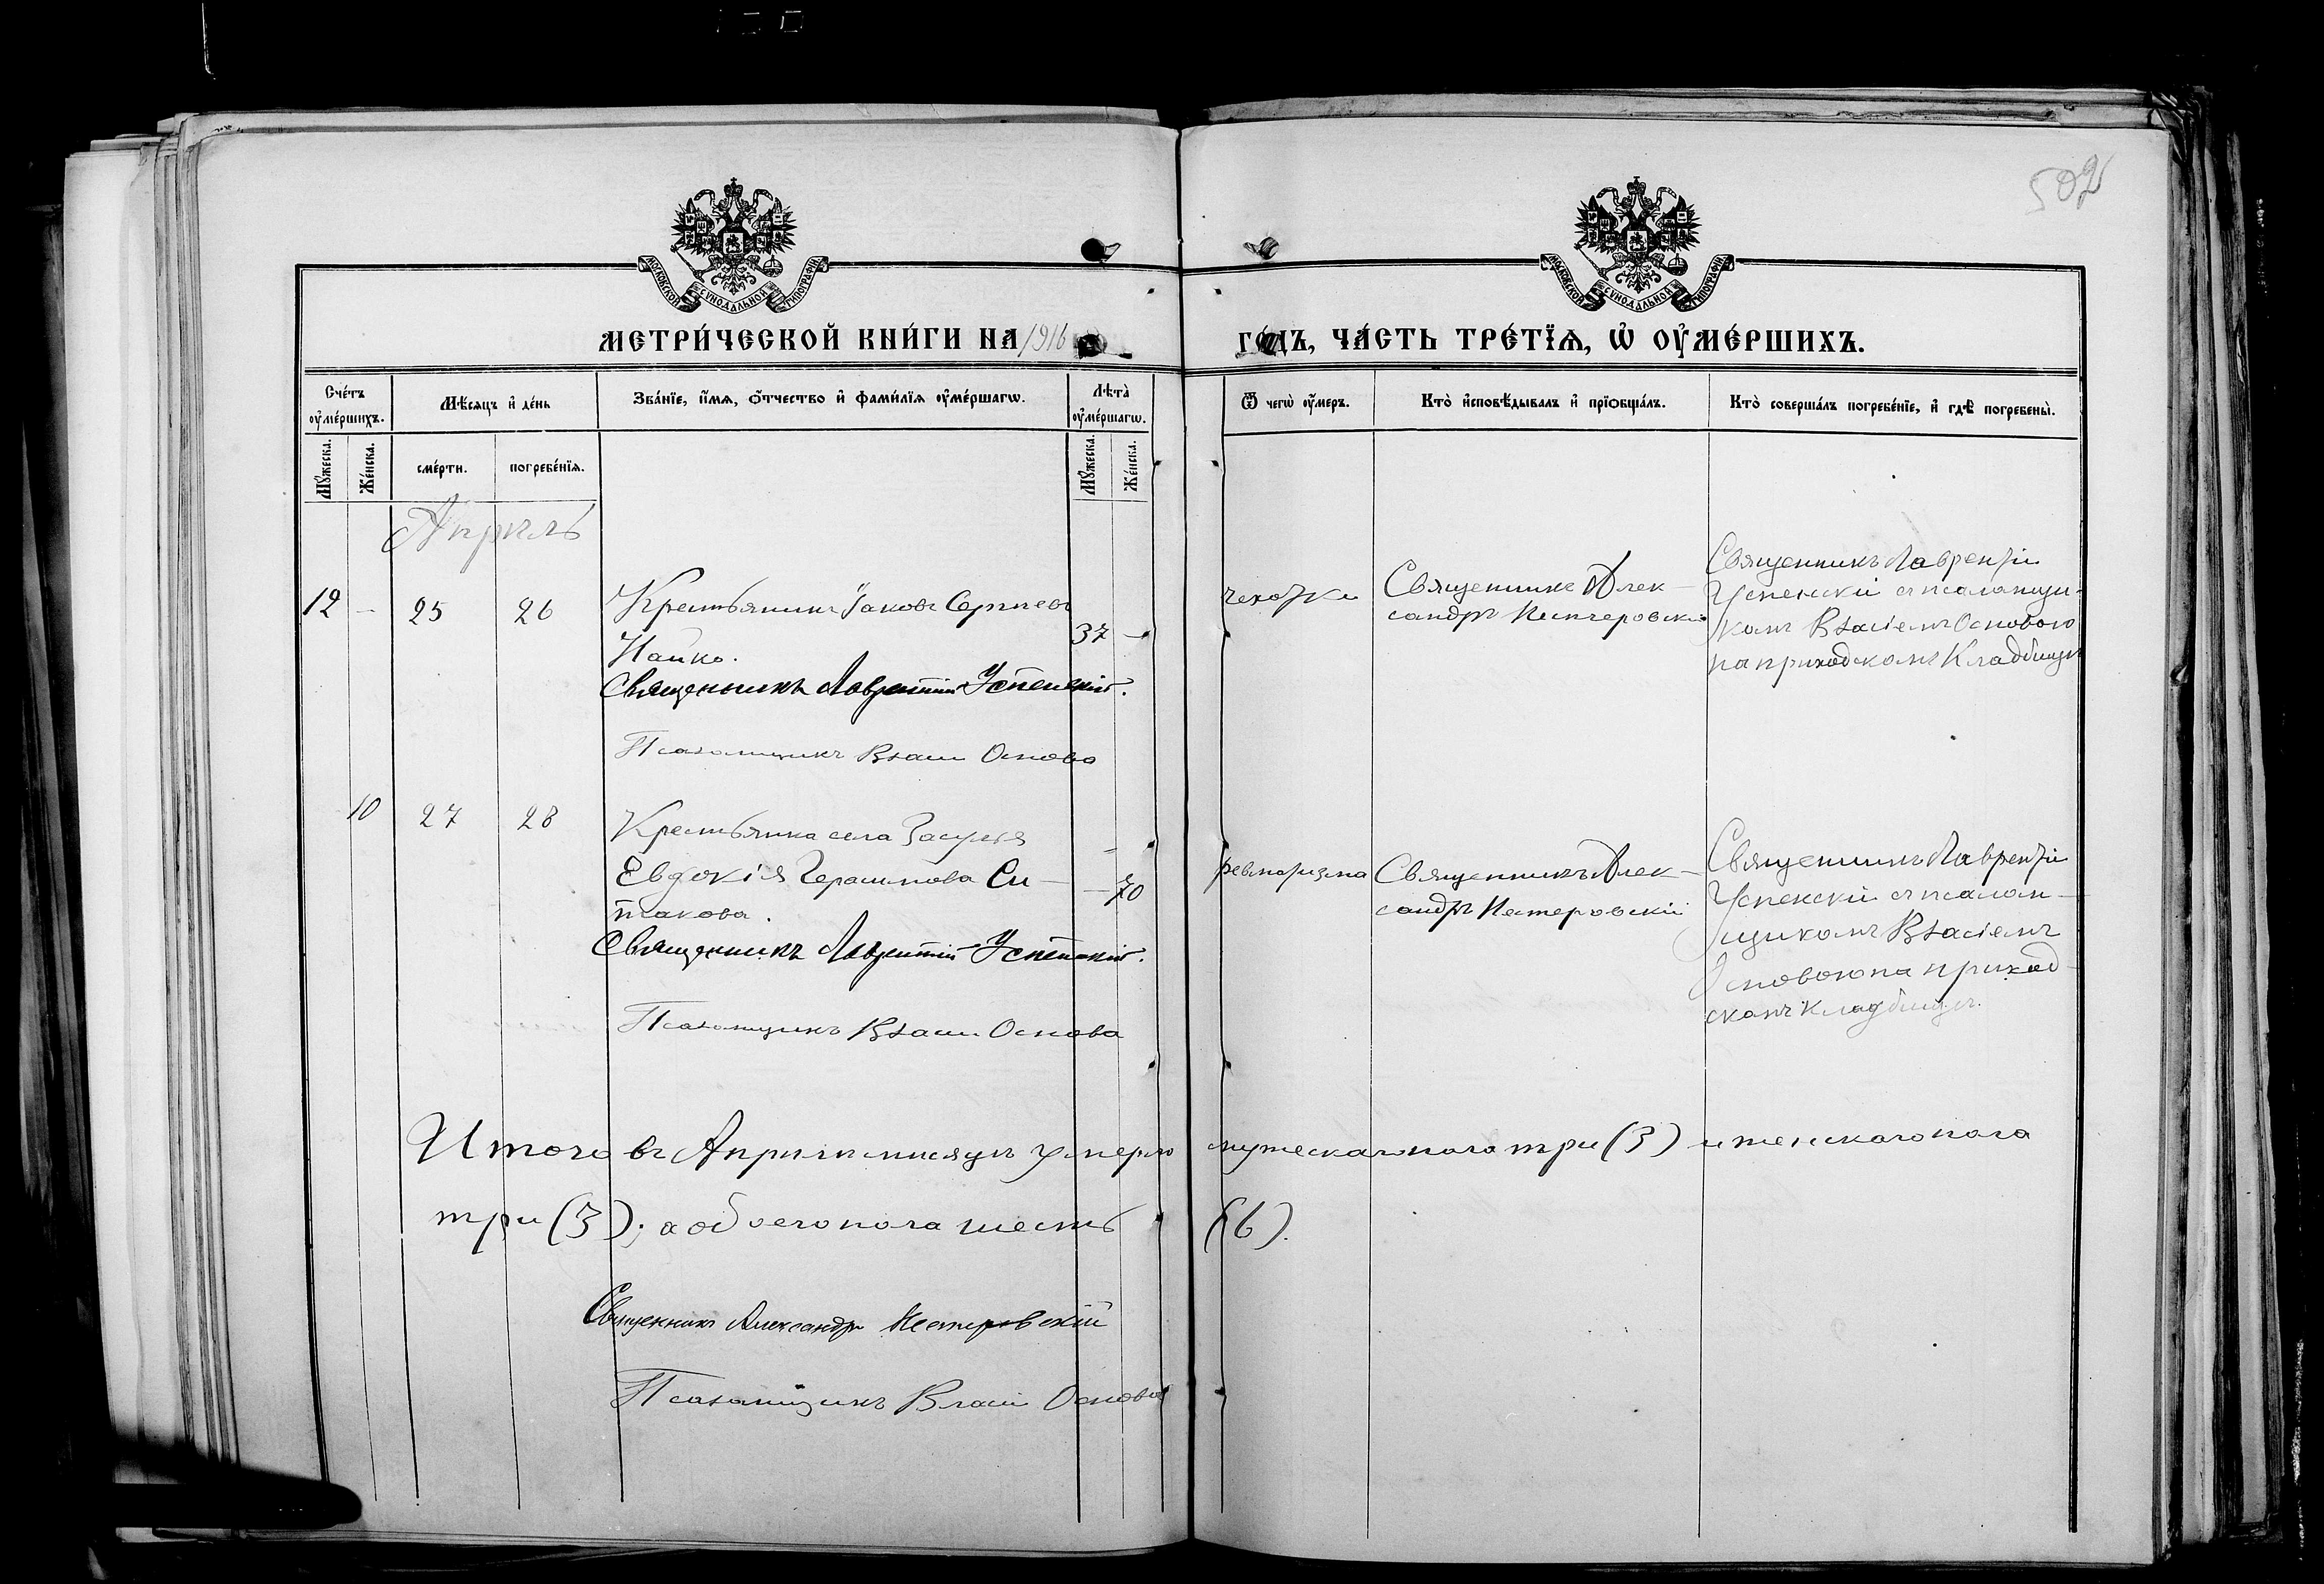 502
МОСКОВСКОЙ СѴНОДАЛЬНОЙ ТИПОГРАФІИ
МОСКОВСКОЙ СѴНОДАЛЬНОЙ ТИПОГРАФІИ
МЕТРИ́ЧЕСКОЙ КНИ́ГИ НА 1916 ГО́ДЪ, ЧА́СТЬ ТРЕ́ТЇѦ, Ѡ҆ ОУ҆МЕ́РШИХЪ.
Сче́тъ оу҆ме́ршихъ.
Мѣ́сяцъ и҆ де́нь
Зва́нїе, и҆́мѧ, ѻ҆́тчество и҆ фами́лїѧ оу҆ме́ршагѡ.
Лѣта̀ оу҆ме́ршагѡ.
Ѿ чегѡ̀ оу҆́меръ.
Кто̀ и҆сповѣ́дывалъ и҆ прїѻбща́лъ.
Кто̀ соверша́лъ погребе́нїе, и҆ гдѣ̀ погребены̀.
Мꙋ́жеска.
Же́нска.
сме́рти.
погребе́нїѧ.
Мꙋ́жеска.
Же́нска.
Апрѣль
12 - 25 26
Крестьянинъ Іаковъ Сергѣевъ
37 -
Священникъ Лаврентій Успенскій.
Псаломщикъ Власій Основа
чахотки
Священникъ Алек-
сандръ Нестеровскій
Священникъ Лаврентій
Успенскій съ псаломщи-
комъ Власіемъ Основою
на приходскомъ кладбищѣ
10 27 28
Крестьянка села Засулья
Евдокія Герасимова Си-
такова.
- 70
Священникъ Лаврентій Успенскій.
Псаломщикъ Власій Основа
ревматизма
Священникъ Алек-
сандръ Нестеровскій
Священникъ Лаврентій
Успенскій съ псалом-
щикомъ Власіемъ
Основою на приход-
скомъ кладбищѣ.
Итого въ Апрѣлѣ мѣсяцѣ умерло мужескаго пола три (3) и женскаго пола
три (3); а обоего пола шесть (6).
Священникъ Александръ Нестеровскій
Псаломщикъ Власій Основа